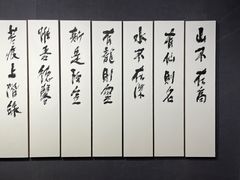 山不在高
有仙則名
水不在深
有龍則靈
斯是陋室
惟吾德馨
苔痕上階綠